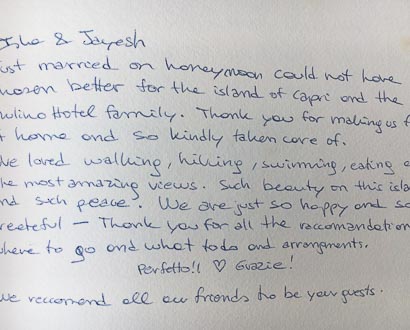 Isha & Jayesh
ust married on honeymoon could not have
hosen better for the island of Capri and the
ulino Hotel family. Thank you for making us f
t home and so kindly taken care of.
we loved walking, hiking, swimming, eating a
he most amazing views. Such beauty on this isla
nd such peace. We are just so happy and so
reateful — Thank you for all the raccomandation
where to go and what todo and arrangments.
Perfetto!! ♡ Grazie!
we reccomend all our friends to be your guests.